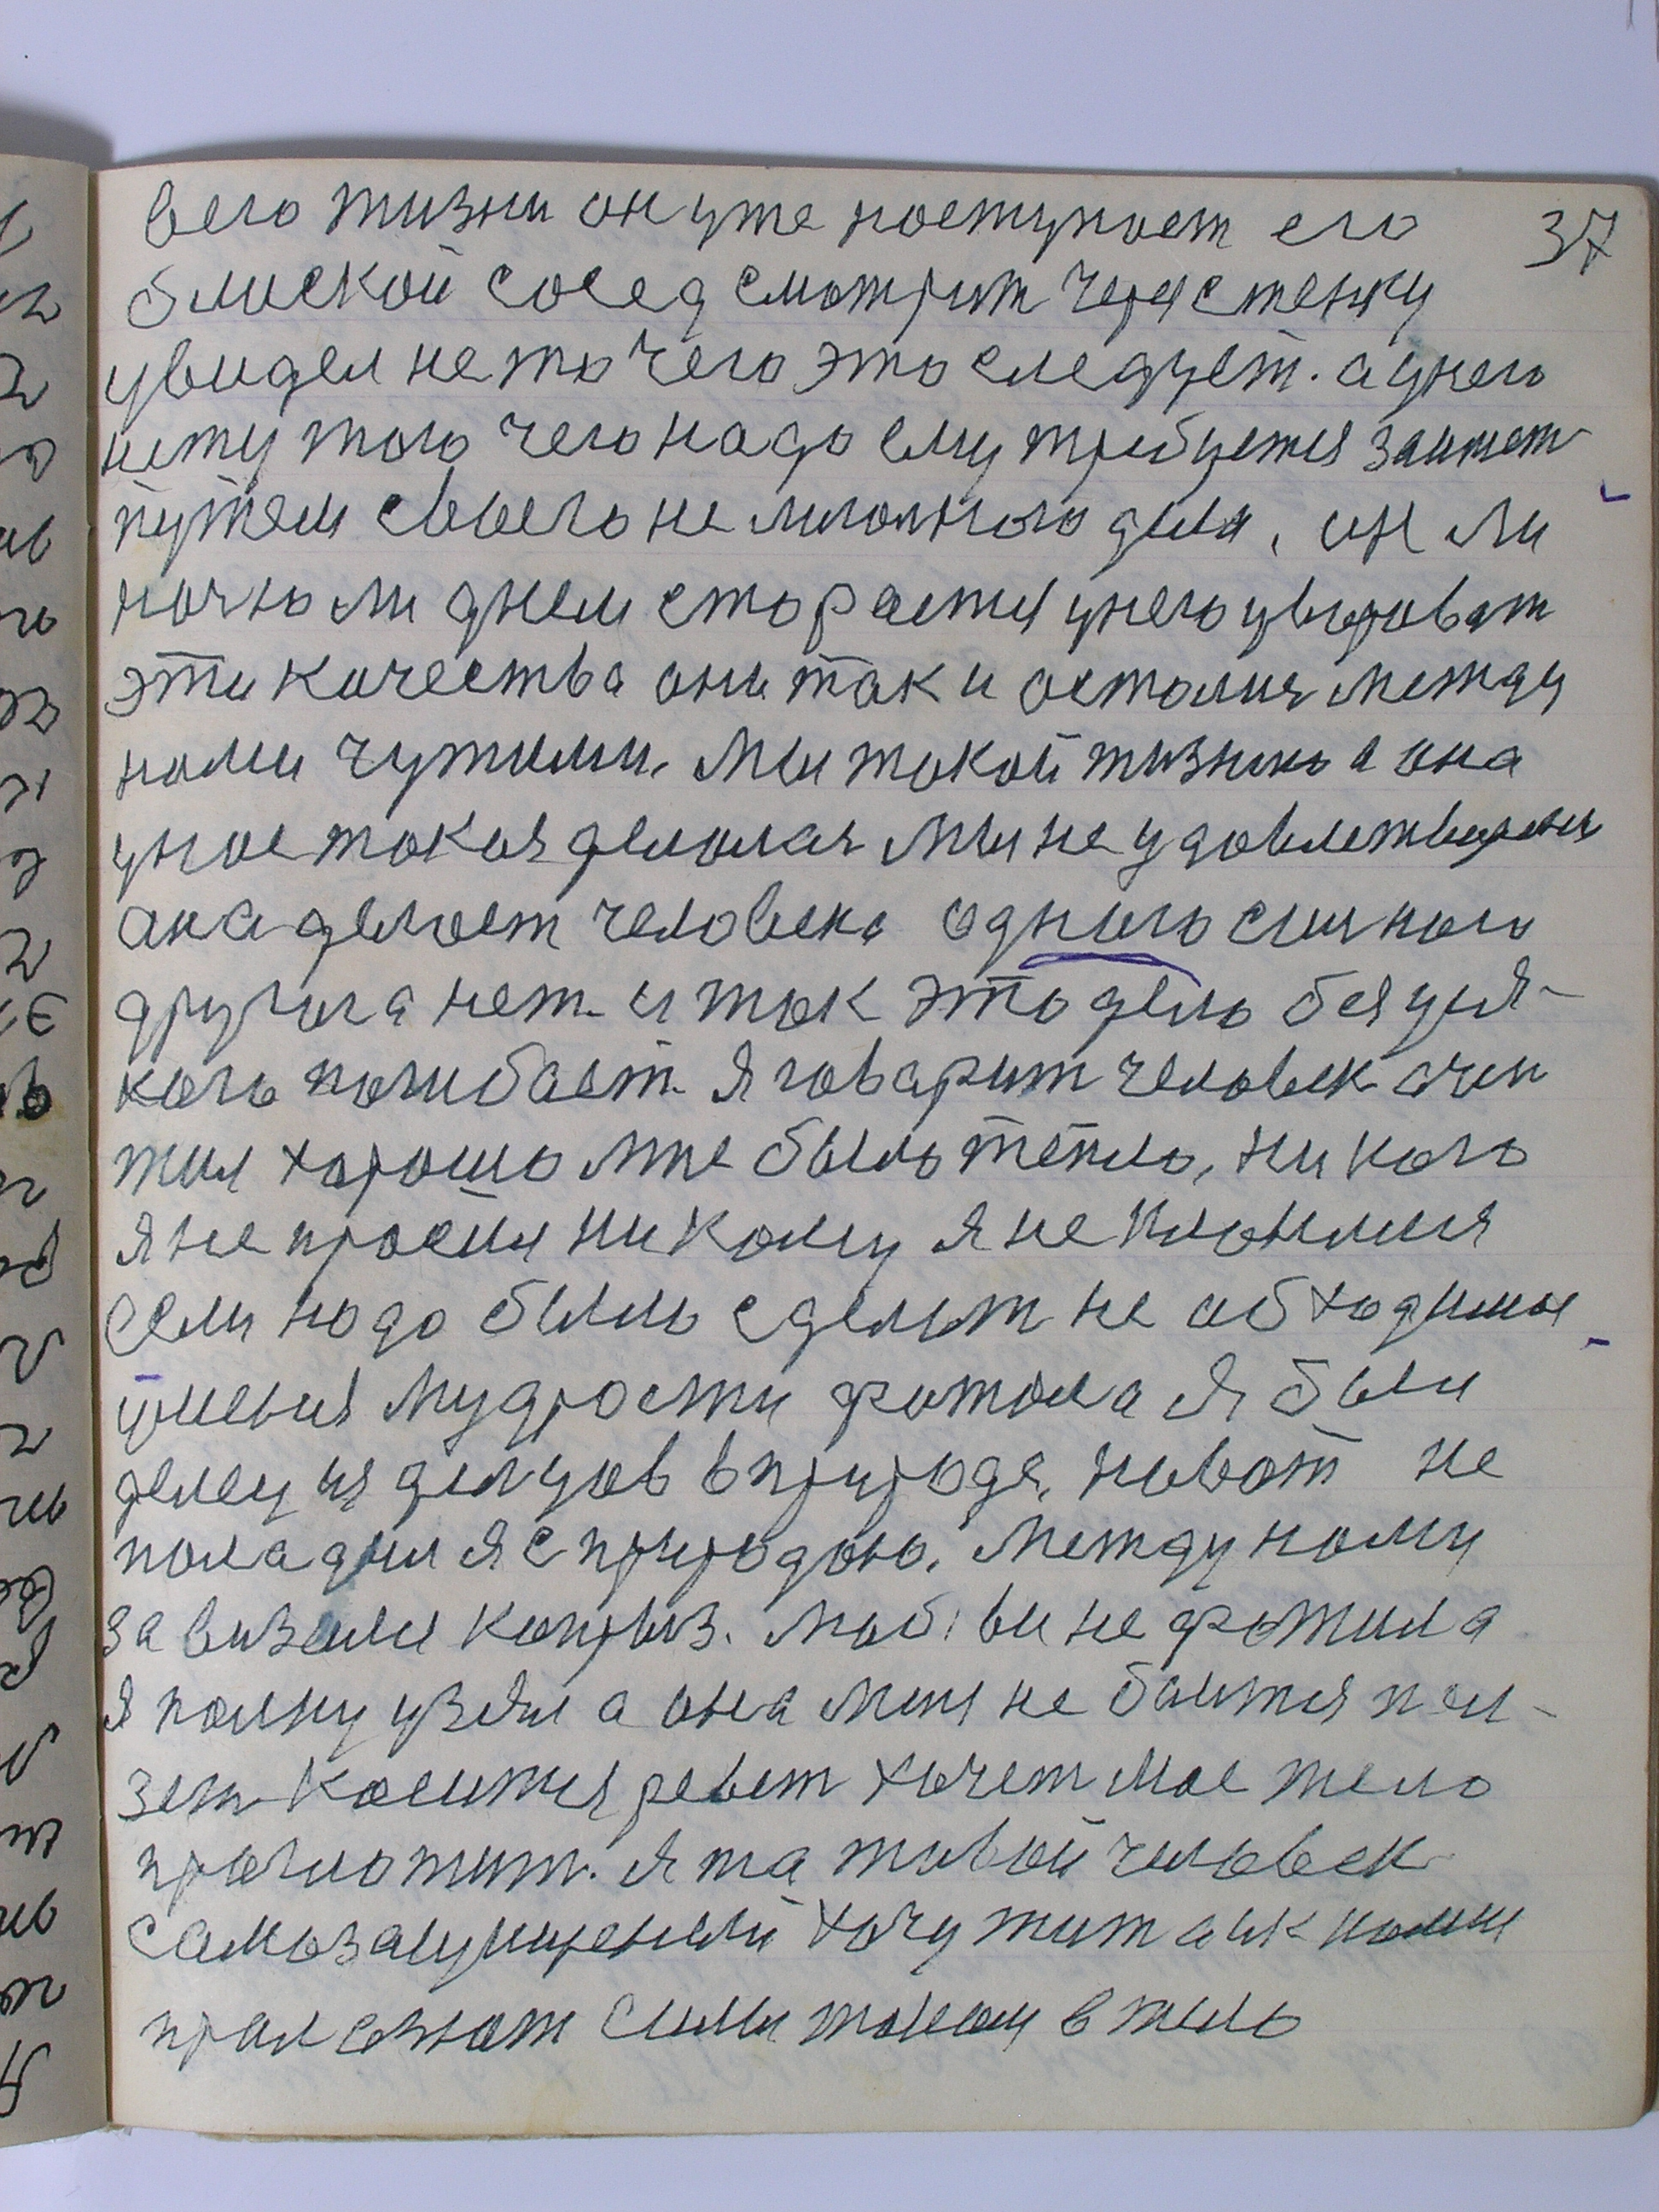 37
вего жизни он уже поступает его
блиской сосед смотрит через стенку
увидел не то чего это следует. а у него
нету того чего надо ему требуется занять
путем своего не милочного дела, он ли
ночю ли днем старается у него уворовать
эти качества они так и остались между
нами чужими. Мы такой жизнью а она
у нас такая делалась мы не удовлетворены
она делает человека одного сильного
другога нет. и так это дело без уся-
кого погибает. Я говарит человек очен
жил хорошо мне было тепло, ни кого
я не просил ни кому я не клонился
если надо было сделат не обходимые
умения мудрости фатала я был
делец из делцов в природе, на вот не
поладил я с природою. Между нами
завизался каприз. моб вы не фатила
я палку узял а она меня не боится пол-
зет косится ревет хочет мое тело
проглотит. Я та живой человек
самозащищеный хочу жит а ик нами
силы такой в тело